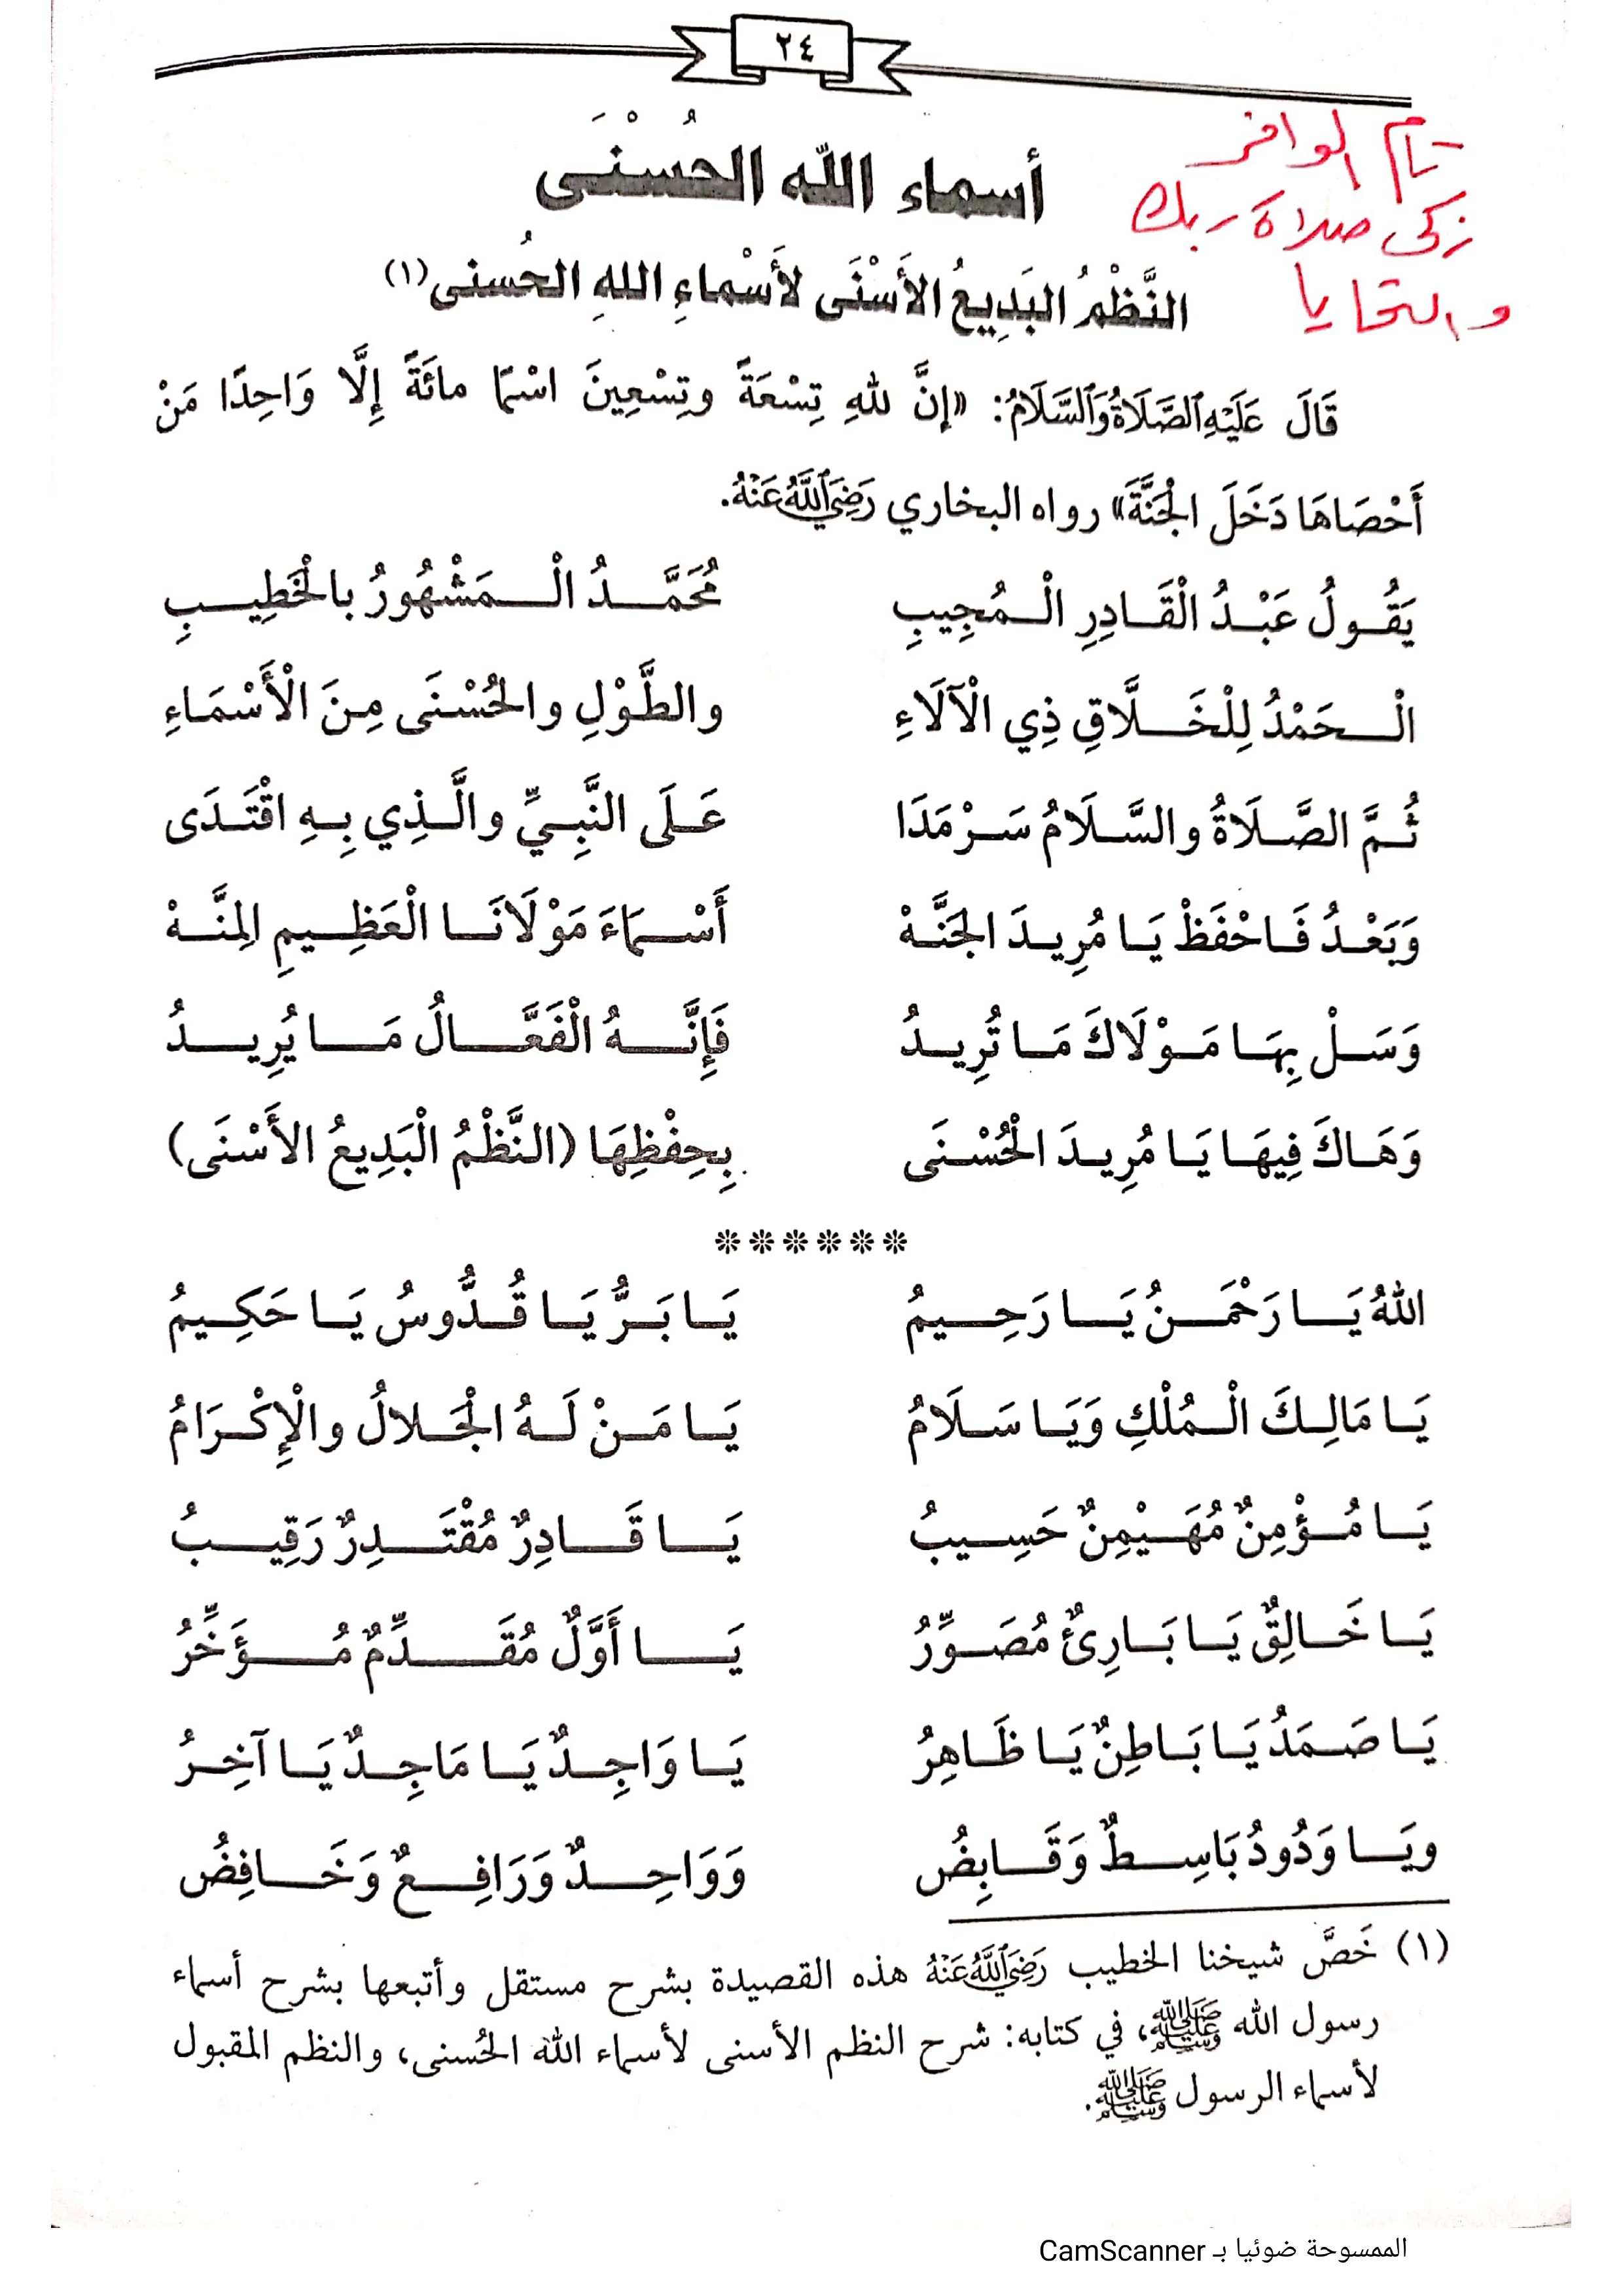 ٢٤
تام الوافر
زكى صلاة ربك
والتحايا
أسماء الله الحُسْنَى
النَّظْمُ البَدِيعُ الأَسْنَى لأَسْماءِ اللهِ الحُسنى(١)
قَالَ عَلَيْهِ ٱلصَّلَاةُ وَٱلسَّلَامُ: «إنَّ للهِ تِسْعَةً وتِسْعِينَ اسْمًا مائَةً إلَّا وَاحِدًا مَنْ
أَحْصَاهَا دَخَلَ الْجَنَّةَ» رواه البخاري رَضِيَ ٱللَّهُ عَنْهُ.
يَقُولُ عَبْدُ الْقَادِرِ الْمُجِيبِ مُحَمَّدُ الْمَشْهُورُ بالْخَطِيبِ
الْحَمْدُ لِلْخَلَّاقِ ذِي الْآلَاءِ والطَّوْلِ والْحُسْنَى مِنَ الْأَسْمَاءِ
ثُمَّ الصَّلَاةُ والسَّلَامُ سَرْمَدَا عَلَى النَّبِيِّ والَّذِي بِهِ اقْتَدَى
وَبَعْدُ فَاحْفَظْ يَا مُرِيدَ الجَنَّهْ أَسْمَاءَ مَوْلَانَا الْعَظِيمِ المِنَّهْ
وَسَلْ بِهَا مَوْلَاكَ مَا تُرِيدُ فَإِنَّهُ الْفَعَّالُ مَا يُرِيدُ
وَهَاكَ فِيهَا يَا مُرِيدَ الْحُسْنَى بِحِفْظِهَا (النَّظْمُ الْبَدِيعُ الأَسْنَى)
******
اللهُ يَا رَحْمَنُ يَا رَحِيمُ يَا بَرُّ يَا قُدُّوسُ يَا حَكِيمُ
يَا مَالِكَ الْمُلْكِ وَيَا سَلَامُ يَا مَنْ لَهُ الْجَلالُ والْإِكْرَامُ
يَا مُؤْمِنٌ مُهَيْمِنٌ حَسِيبُ يَا قَادِرٌ مُقْتَدِرٌ رَقِيبُ
يَا خَالِقٌ يَا بَارِئٌ مُصَوِّرُ يَا أَوَّلٌ مُقَدِّمٌ مُؤَخِّرُ
يَا صَمَدُ يَا بَاطِنٌ يَا ظَاهِرُ يَا وَاجِدٌ يَا مَاجِدٌ يَا آخِرُ
ويَا وَدُودُ بَاسِطٌ وَقَابِضُ وَوَاحِدٌ وَرَافِعٌ وَخَافِضُ
(١) خَصَّ شيخنا الخطيب رَضِيَ ٱللَّهُ عَنْهُ هذه القصيدة بشرح مستقل وأتبعها بشرح أسماء
رسول الله ﷺ، في كتابه: شرح النظم الأسنى لأسماء الله الحُسنى، والنظم المقبول
لأسماء الرسول ﷺ.
الممسوحة ضوئيا بـ CamScanner